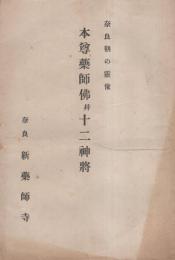 奈良朝の靈像
本尊藥師佛幷十二神將
奈良 新藥師寺